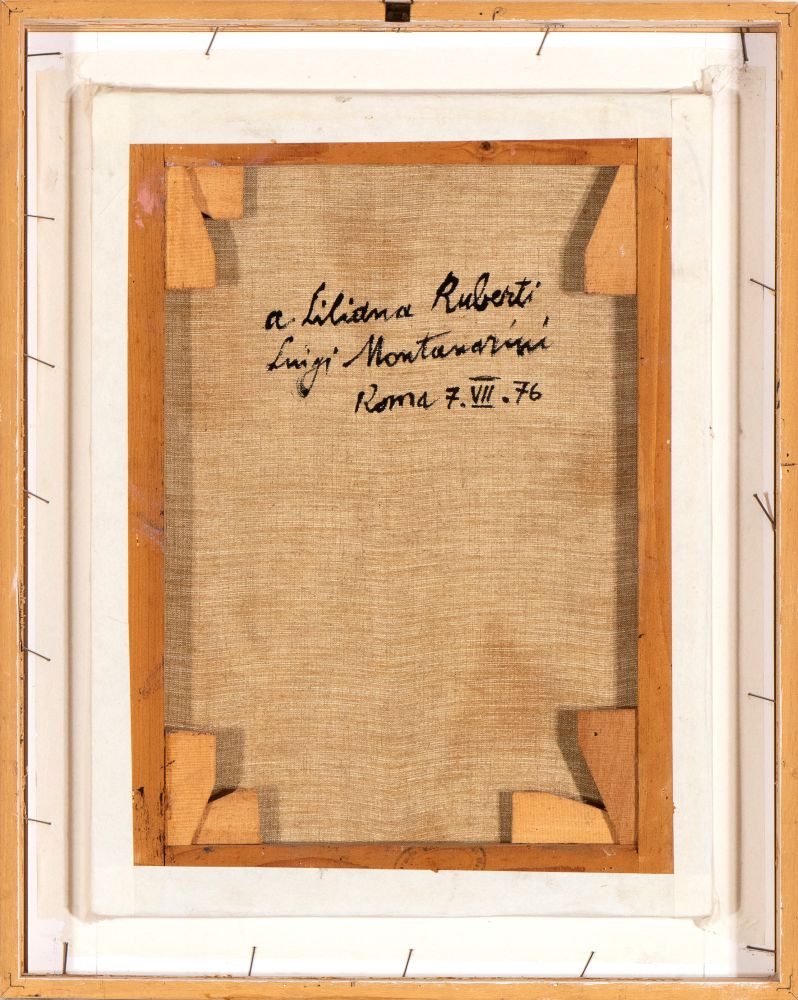 a Liliana Ruberti
Luigi Montanarini
Roma 7.VII.76